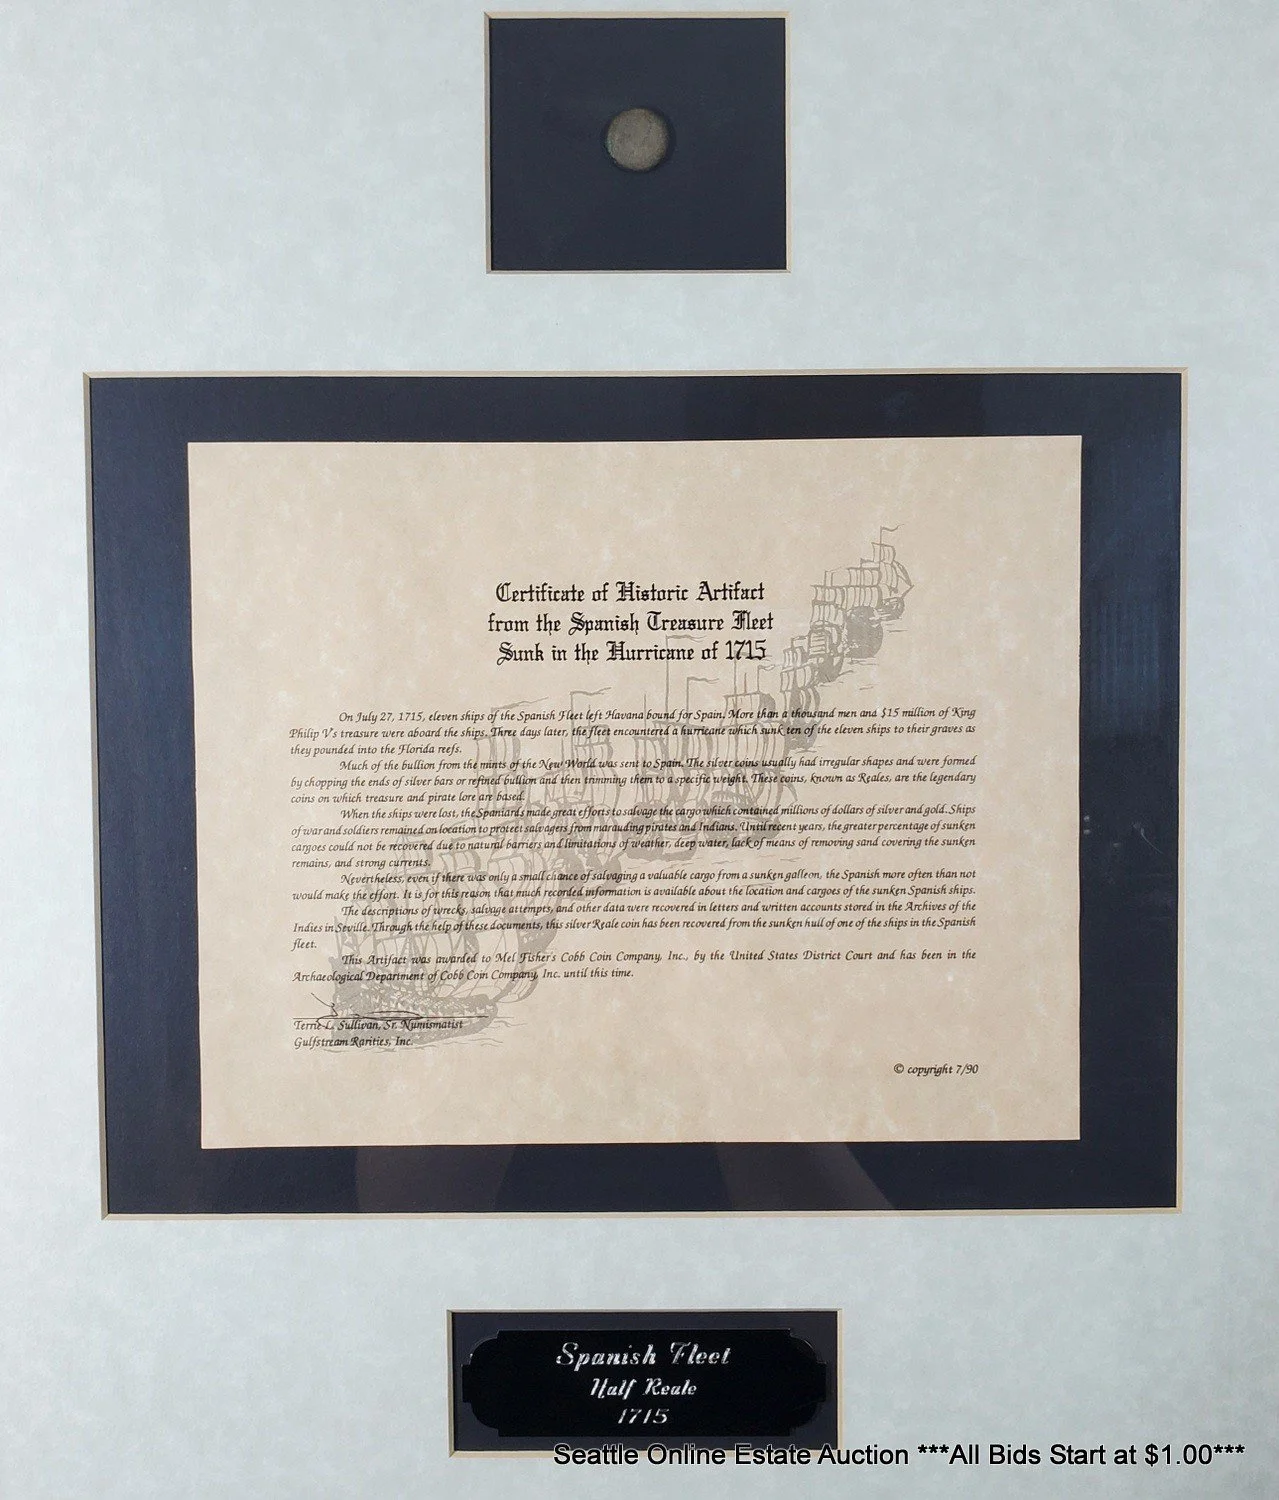 Certificate of Historic Artifact
from the Spanish Treasure Fleet
Sunk in the Hurricane of 1715
On July 27, 1715, eleven ships of the Spanish Fleet left Havana bound for Spain. More than a thousand men and $15 million of King
Philip V's treasure were aboard the ships. Three days later, the fleet encountered a hurricane which sunk ten of the eleven ships to their graves as
they pounded into the Florida reefs.
Much of the bullion from the mints of the New World was sent to Spain. The silver coins usually had irregular shapes and were formed
by chopping the ends of silver bars or refined bullion and then trimming them to a specific weight. These coins, known as Reales, are the legendary
coins on which treasure and pirate lore are based.
When the ships were lost, the Spaniards made great efforts to salvage the cargo which contained millions of dollars of silver and gold. Ships
of war and soldiers remained on location to protect salvagers from marauding pirates and Indians. Until recent years, the greater percentage of sunken
cargoes could not be recovered due to natural barriers and limitations of weather, deep water, lack of means of removing sand covering the sunken
remains, and strong currents.
Nevertheless, even if there was only a small chance of salvaging a valuable cargo from a sunken galleon, the Spanish more often than not
would make the effort. It is for this reason that much recorded information is available about the location and cargoes of the sunken Spanish ships.
The descriptions of wrecks, salvage attempts, and other data were recovered in letters and written accounts stored in the Archives of the
Indies in Seville. Through the help of these documents, this silver Reale coin has been recovered from the sunken hull of one of the ships in the Spanish
fleet.
This Artifact was awarded to Mel Fisher's Cobb Coin Company, Inc., by the United States District Court and has been in the
Archaeological Department of Cobb Coin Company, Inc. until this time.
Terrie L. Sullivan, Sr. Numismatist
Gulfstream Rarities, Inc.
© copyright 7/90
Spanish Fleet
Half Reale
1715
Seattle Online Estate Auction ***All Bids Start at $1.00***